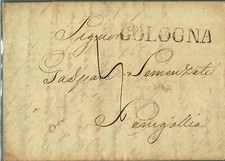 Signor BOLOGNA
Gaspare Semenzati
Senigallia